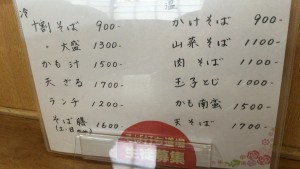 冷
十割そば 900-
〃 大盛 1300-
かも汁 1500-
天ざる 1700-
ランチ 1200-
そば膳 1600-
温
かけそば 900-
山菜そば 1100-
肉そば 1100-
玉子とじ 1000-
かも南蛮 1500-
天そば 1700-
募集